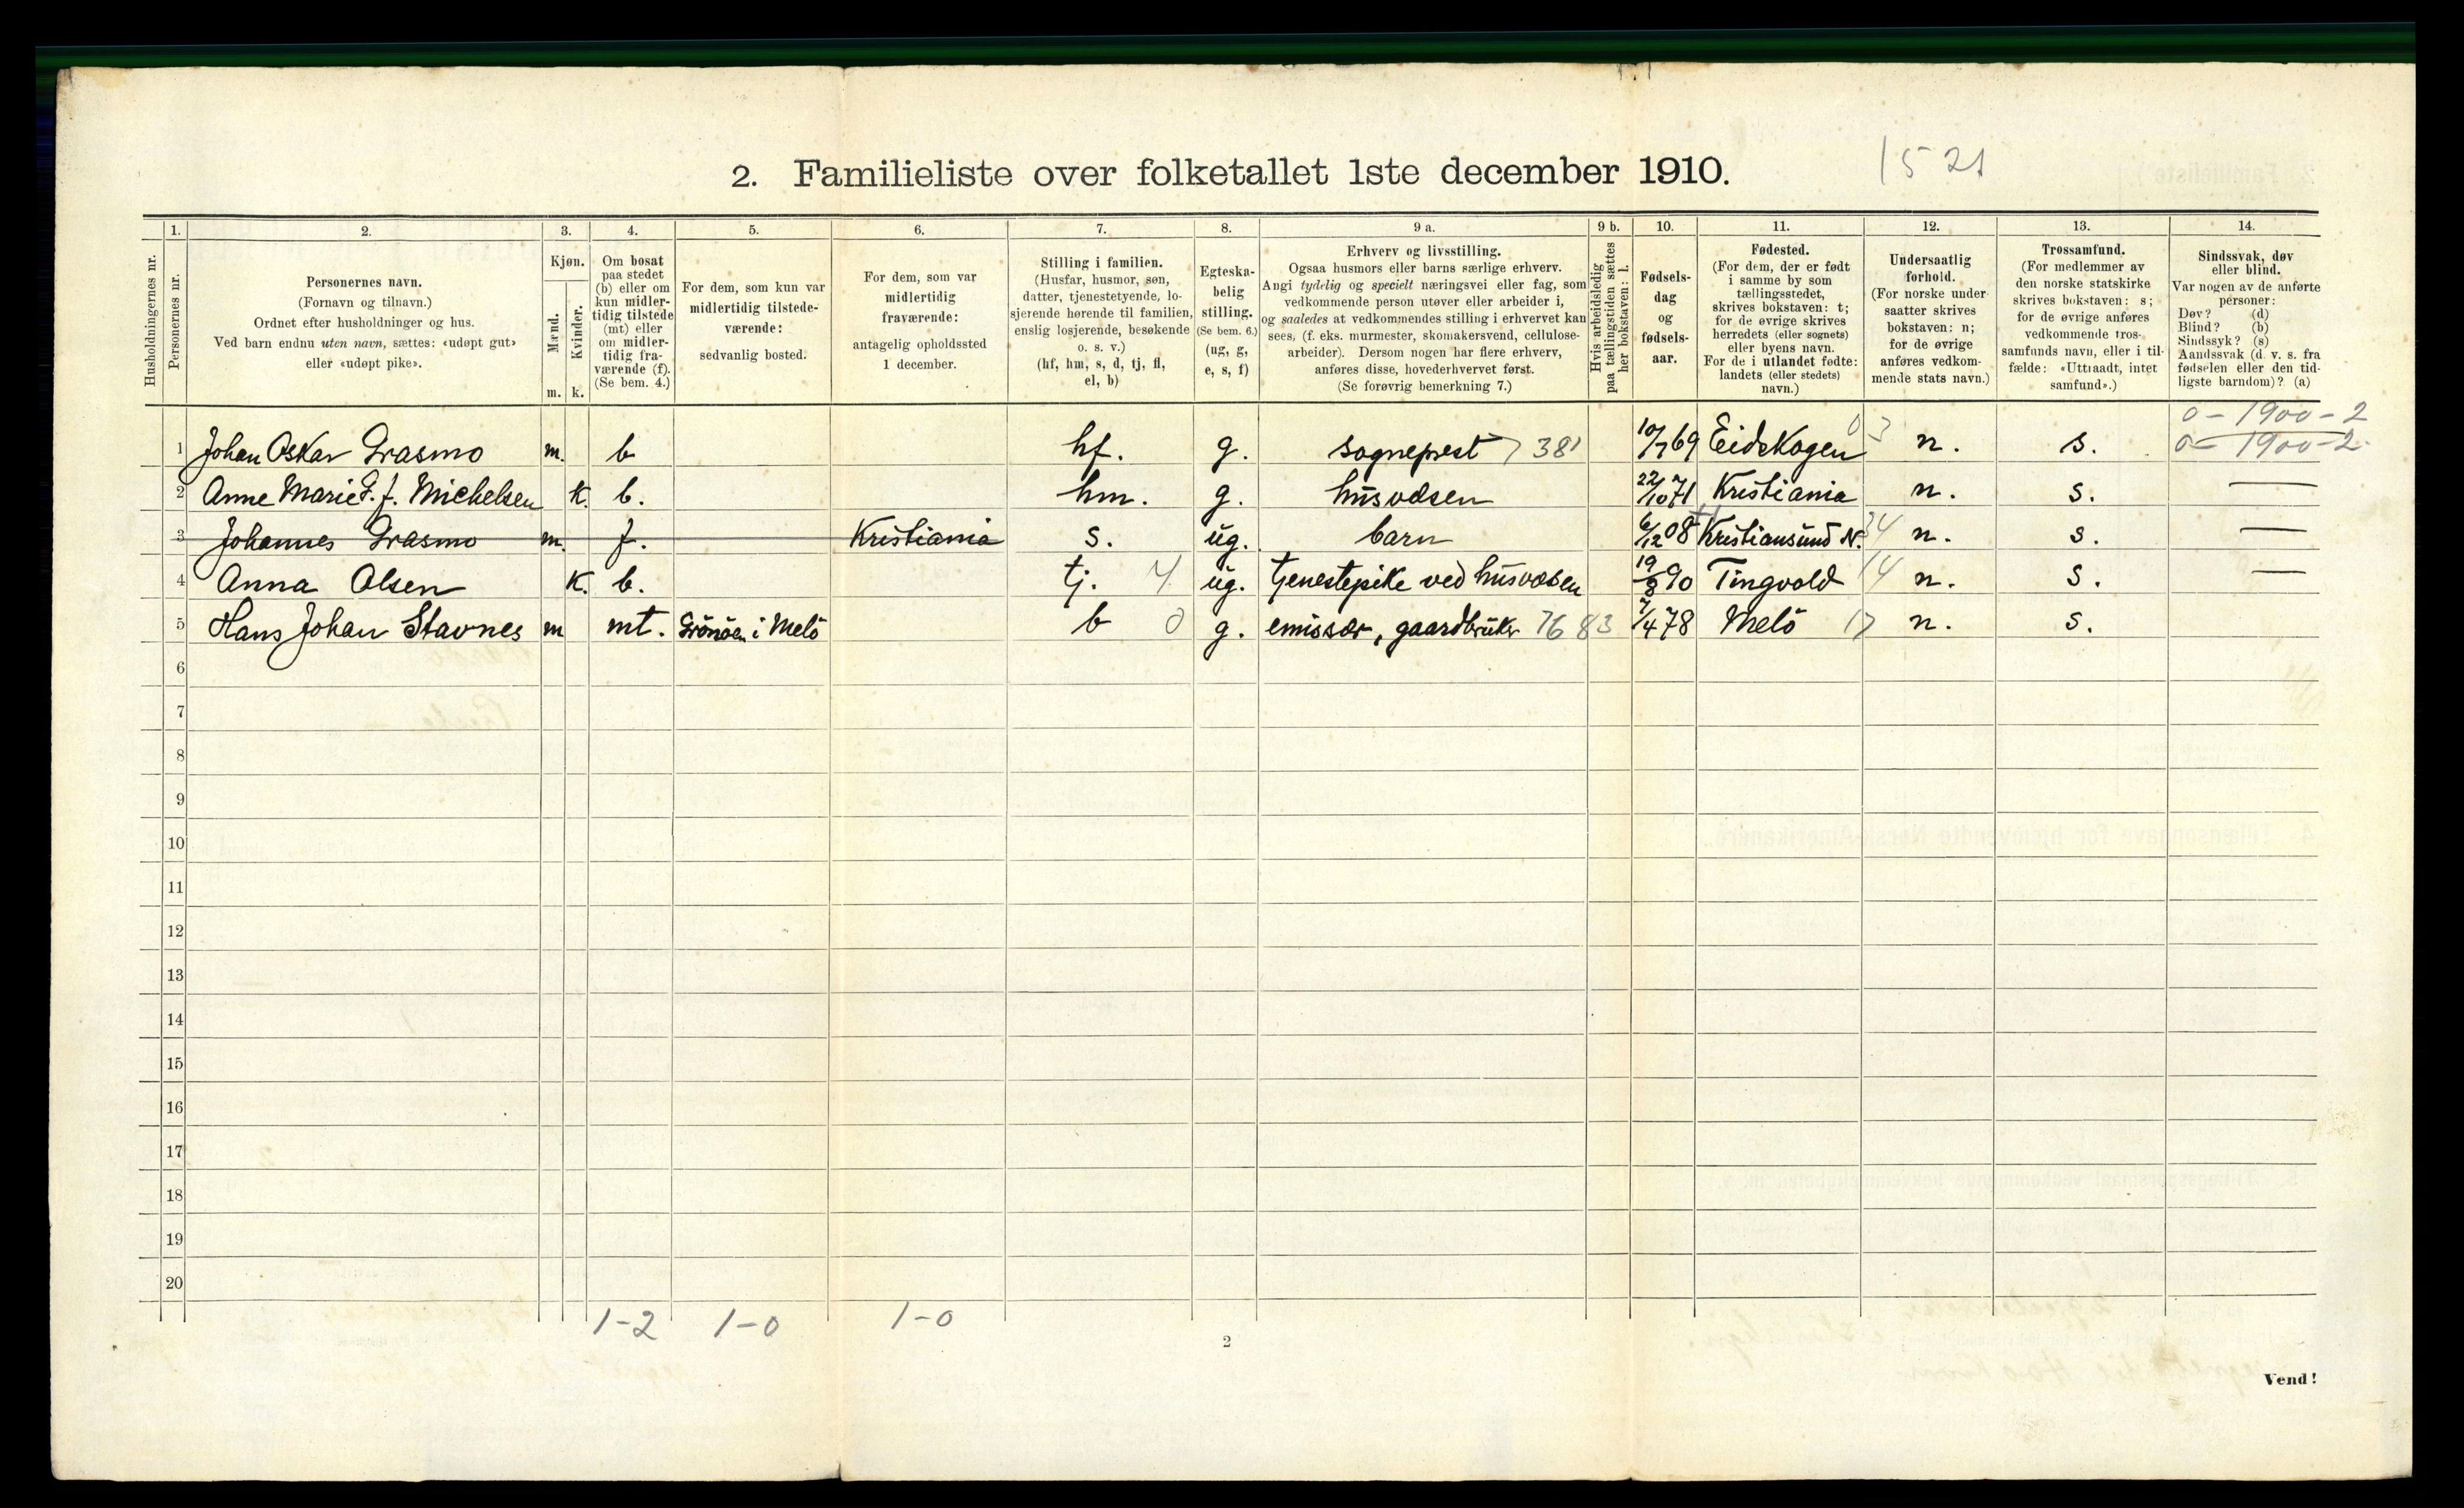 2. Familieliste over folketallet 1ste december 1910.
1521
1. 2. 3. 4. 5. 6. 7. 8. 9 a. 9 b. 10. 11. 12. 13. 14.
Husholdningernes nr.
Personernes nr.
Personernes navn.
(Fornavn og tilnavn.)
Ordnet efter husholdninger og hus.
Ved barn endnu uten navn, sættes: «udøpt gut»
eller «udøpt pike».
Kjøn.
Mænd.
Kvinder.
m. k.
Om bosat
paa stedet
(b) eller om
kun midler-
tidig tilstede
(mt) eller
om midler-
tidig fra-
værende (f).
(Se bem. 4.)
For dem, som kun var
midlertidig tilstede-
værende:
sedvanlig bosted.
For dem, som var
midlertidig
fraværende:
antagelig opholdssted
1 december.
Stilling i familien.
(Husfar, husmor, søn,
datter, tjenestetyende, lo-
sjerende hørende til familien,
enslig losjerende, besøkende
o. s. v.)
(hf, hm, s, d, tj, fl,
el, b)
Egteska-
belig
stilling.
(Se bem. 6.)
(ug, g,
e, s, f)
Erhverv og livsstilling.
Ogsaa husmors eller barns særlige erhverv.
Angi tydelig og specielt næringsvei eller fag, som
vedkommende person utøver eller arbeider i,
og saaledes at vedkommendes stilling i erhvervet kan
sees, (f. eks. murmester, skomakersvend, cellulose-
arbeider). Dersom nogen har flere erhverv,
anføres disse, hovederhvervet først.
(Se forøvrig bemerkning 7.)
Hvis arbeidsledig
paa tællingstiden sættes
her bokstaven: l.
Fødsels-
dag
og
fødsels-
aar.
Fødested.
(For dem, der er født
i samme by som
tællingsstedet,
skrives bokstaven: t;
for de øvrige skrives
herredets (eller sognets)
eller byens navn.
For de i utlandet fødte:
landets (eller stedets)
navn.)
Undersaatlig
forhold.
(For norske under
saatter skrives
bokstaven: n;
for de øvrige
anføres vedkom-
mende stats navn.)
Trossamfund.
(For medlemmer av
den norske statskirke
skrives bokstaven: s;
for de øvrige anføres
vedkommende tros-
samfunds navn, eller i til-
fælde: «Uttraadt, intet
samfund».)
Sindssvak, døv
eller blind.
Var nogen av de anførte
personer:
Døv? (d)
Blind? (b)
Sindssyk? (s)
Aandssvak (d. v. s. fra
fødselen eller den tid-
ligste barndom)? (a)
0 - 1900 - 2
1 Johan Oskar Grasmo m. b hf. g. sogneprest 7 381 10/7 69 Eidskogen 03 n. s. 0 - 1900 - 2
2 Anne Marie F. f. Michelsen k. b. hm. g. husvæsen 22/10 71 Kristiania n. s. —
3 Johannes Grasmo m. f. Kristiania s. ug. barn 6/12 08 Kristiansund N. 24 n. s. —
4 Anna Olsen k. b. tj. 4 ug. tjenestepike ved husvæsen 19/8 90 Tingvold 14 n. s. —
5 Hans Johan Stavnes m mt. Grönöen i Melö b 0 g. emissær, gaardbruker 76 83 7/4 78 Melö 17 n. s.
6
7
8
9
10
11
12
13
14
15
16
17
18
19
20
1-2 1-0 1-0
2
Vend!